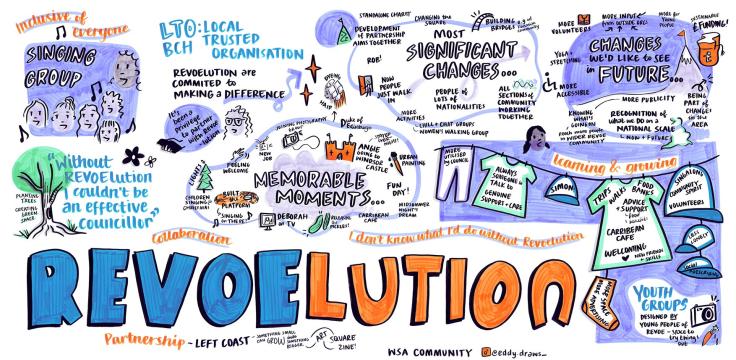 Inclusive of everyone
SINGING
GROUP
LTO: LOCAL
BCH TRUSTED
ORGANISATION
REVOELUTION are
COMMITED to
MAKING A DIFFERENCE
It's been a privilege
to partner
with Revoe
lution
"Without
REVOElution
I couldn't be
an effective
councillor"
PLANTING
TREES
CREATING
GREEN
SPACE
STANDALONE CHARITY
DEVELOPMENT
of PARTNERSHIP
AIMS TOGETHER
CHANGING the
SQUARE
BUILDING
BRIDGES
MOST
SIGNIFICANT
CHANGES...
ROE!
NOW
PEOPLE
JUST WALK
IN
PEOPLE of
LOTS of
NATIONALITIES
ALL
SECTIONS of
COMMUNITY
WORKING
TOGETHER
MORE
ACTIVITIES
CHILL + CHAT GROUPS
WOMEN'S WALKING GROUP
MORE
VOLUNTEERS
MORE INPUT
from OUTSIDE ORGS
MORE for
YOUNG
PEOPLE
SUSTAINABLE
£ FUNDING!
YOGA +
STRETCHING
CHANGES
WE'D LIKE to SEE
in FUTURE...
MORE
ACCESSIBLE
MORE PUBLICITY
KNOWING
WHAT'S
GOING ON
RECOGNITION of
WHAT WE DO ON A
NATIONAL SCALE
NOW + FUTURE
BEING
PART of
CHANGE
in the
AREA
Duke of Edinburgh
NEW
JOB
FEELING
WELCOME
ANGIE
GOING to
WINDSOR
CASTLE
URBAN
PAINTING
MEMORABLE
MOMENTS...
CHILDREN
SINGING @
CHRISTMAS
BUILT
THIS
PLATFORM
FUN
DAY!
MIDSUMMER
NIGHT'S
DREAM
SINGING
in THERE!
DEBORAH
on TV
CARIBBEAN
CAFE
Collaboration
I don't know what I'd do without Revoelution
learning & growing
MORE
UTILISED
by COUNCIL
ALWAYS
SOMEONE to
TALK to
GENUINE
SUPPORT + CARE
SIMON
TRIPS
WALKS
FOOD
BANKS
ADVICE
+ SUPPORT
CARRIBEAN
CAFE
WELCOMING
NEW FRIENDS
+ SKILLS
COMMUNITY
SPIRIT
VOLUNTEERS
LESS
LONELY
SOCIAL
PRESCRIBING
MORE SPACE
ADVERTISING
YOUTH
GROUPS
DESIGNED BY
YOUNG PEOPLE of
REVOE - space to
try things
out
REVOELUTION
Partnership - LEFT COAST - SOMETHING SMALL
CAN GROW into
SOMETHING
BIGGER
ART
SQUARE
ZINE!
WSA COMMUNITY
@eddy.draws_